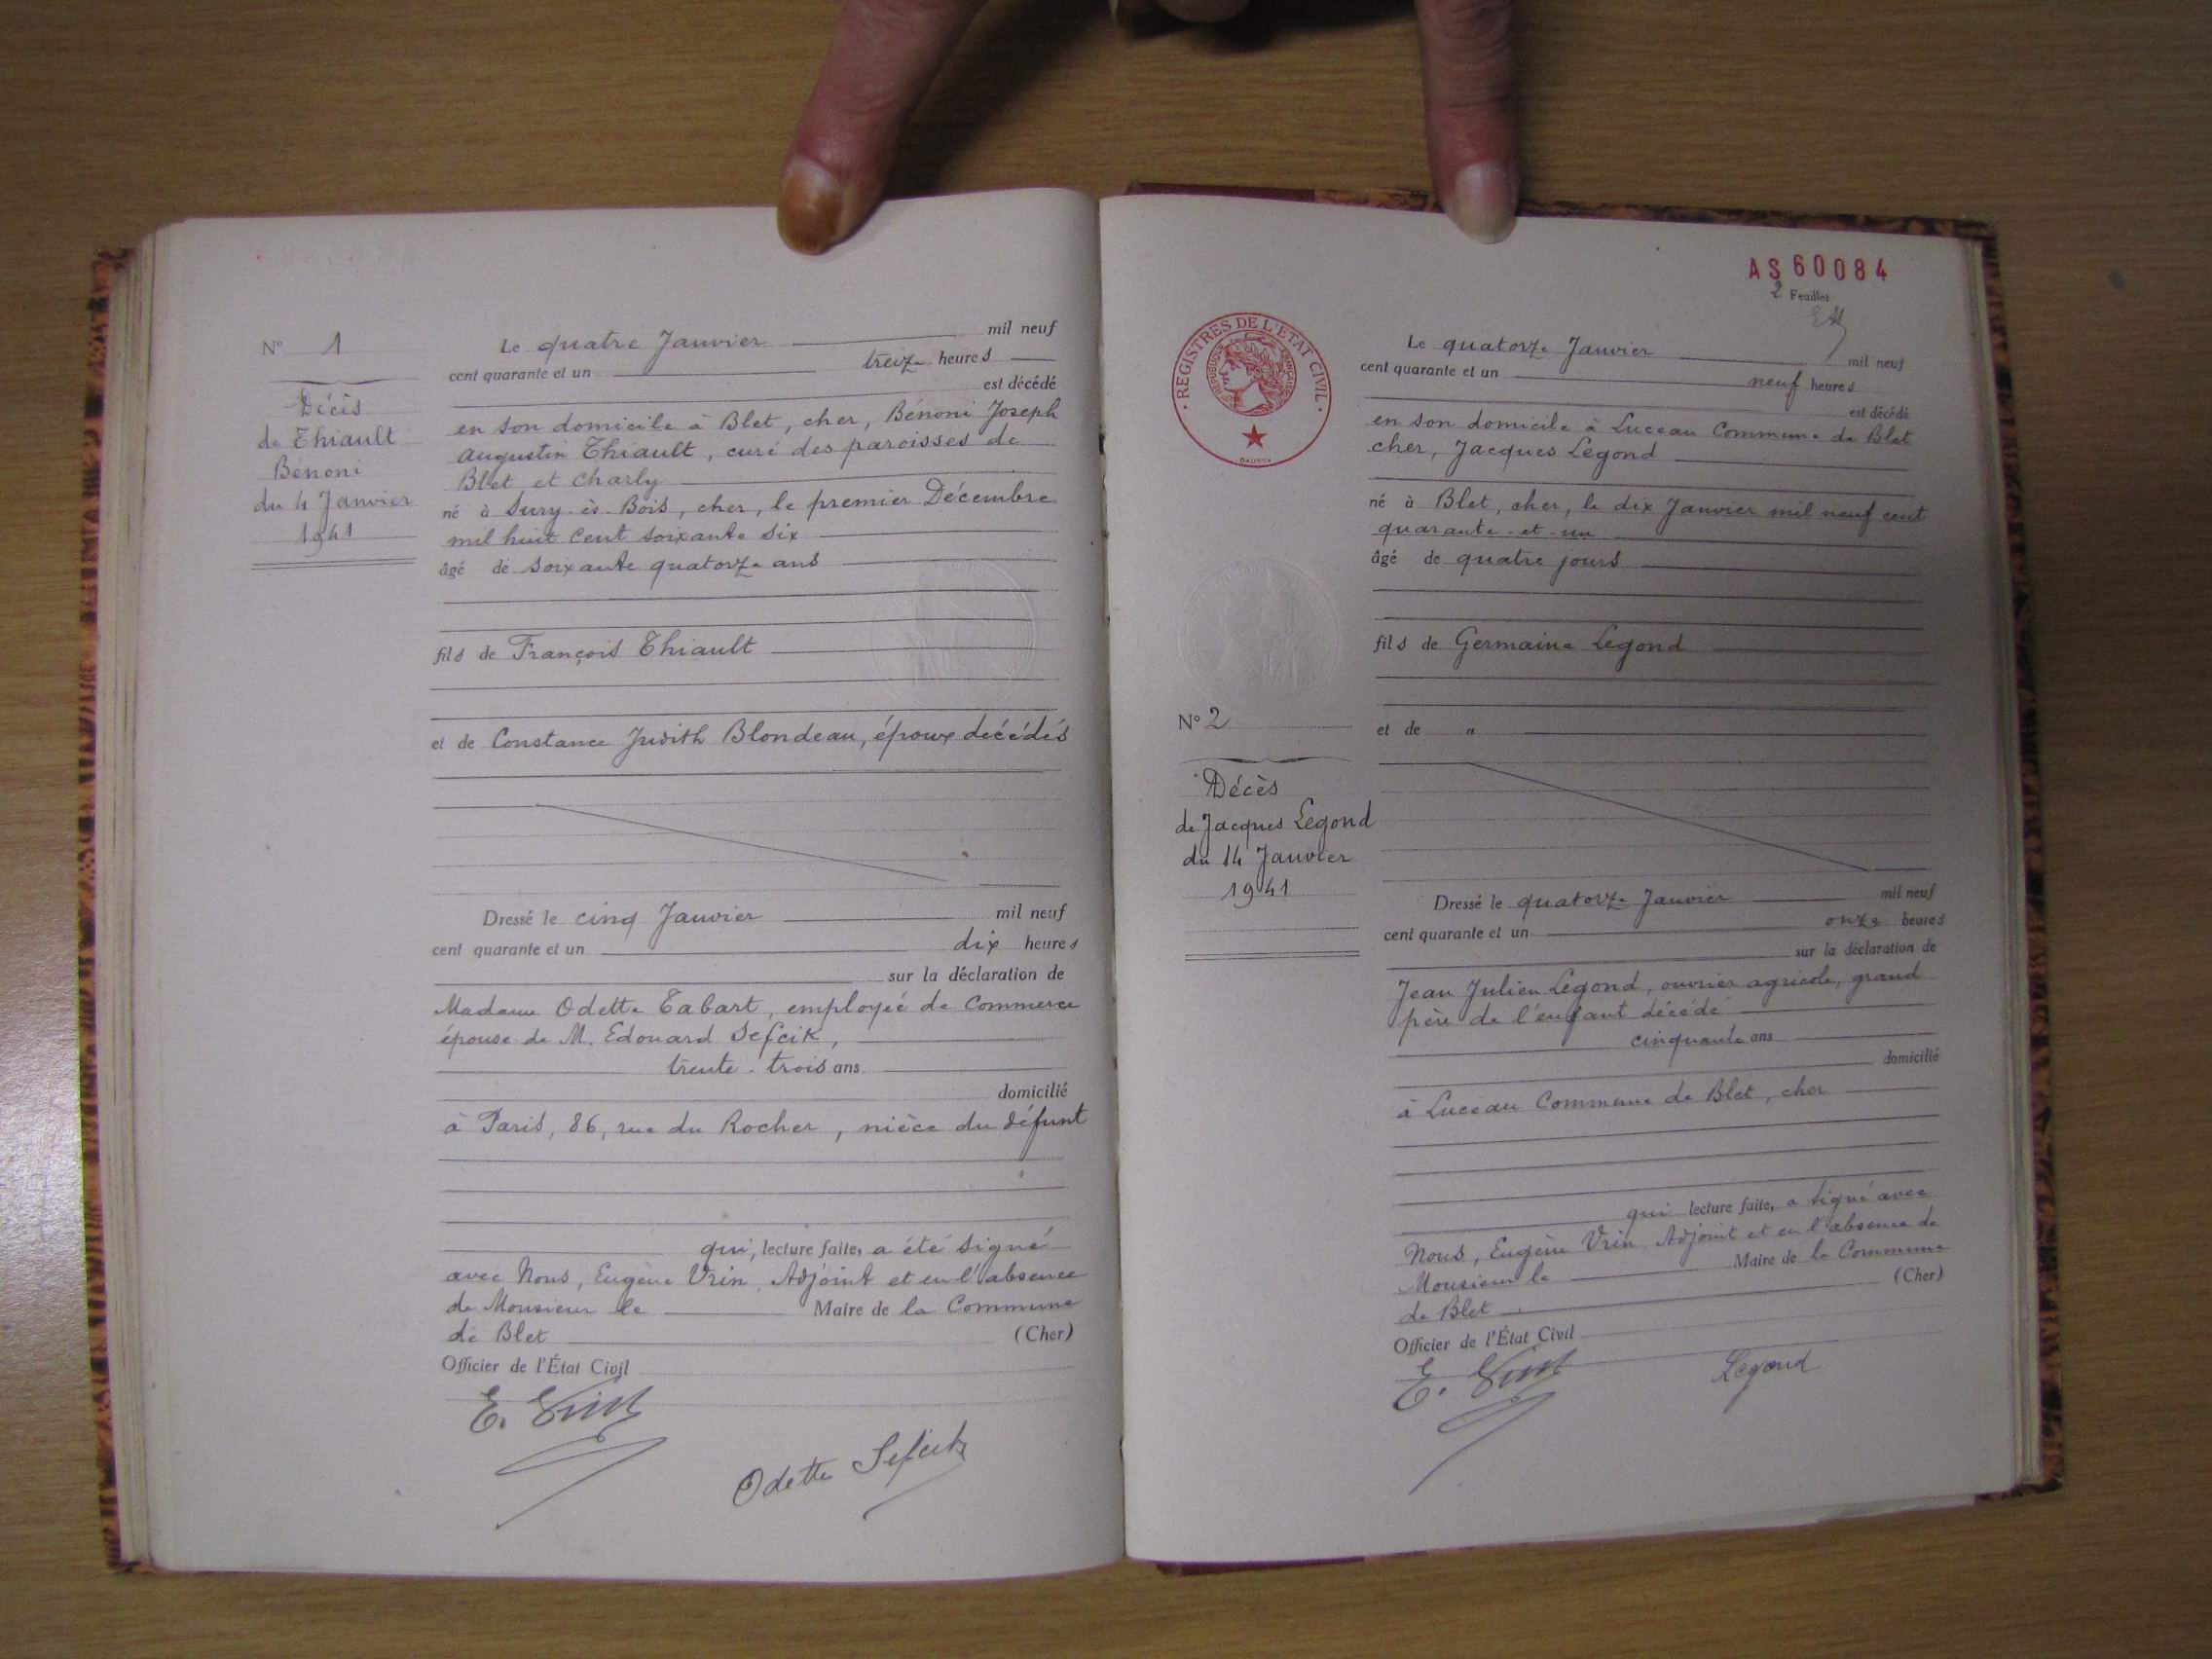 N° 1
Décès
de Thiault
Bénoni
du 4 Janvier
1941
Le quatre Janvier mil neuf
cent quarante et un treize heures
est décédé
en son domicile à Blet, cher, Bénoni Joseph
Augustin Thiault, curé des paroisses de
Blet et Charly
né à Sury-ès-Bois, cher, le premier Décembre
mil huit cent soixante six
âgé de soixante quatorze ans
fils de François Thiault
et de Constance Judith Blondeau, époux décédés
Dressé le cinq Janvier mil neuf
cent quarante et un dix heures
sur la déclaration de
Madame Odette Tabart, employée de Commerce
épouse de M. Edouard Sefcik,
trente-trois ans
domicilié
à Paris, 86, rue du Rocher, nièce du défunt
qui, lecture faite, a été signé
avec Nous, Eugène Vrin, Adjoint et en l'absence
de Monsieur le Maire de la Commune
de Blet (Cher)
Officier de l'État Civil
E. Vrin
Odette Sefcik
AS 60084
2 Feuillet
REGISTRES DE L'ETAT CIVIL
REPUBLIQUE FRANÇAISE
Le quatorze Janvier mil neuf
cent quarante et un neuf heures
est décédé
en son domicile à Luceau Commune de Blet
cher, Jacques Legond
né à Blet, cher, le dix Janvier mil neuf cent
quarante-et-un
âgé de quatre jours
fils de Germaine Legond
et de "
N° 2
Décès
de Jacques Legond
du 14 Janvier
1941
Dressé le quatorze Janvier mil neuf
cent quarante et un onze heures
sur la déclaration de
Jean Julien Legond, ouvrier agricole, grand
père de l'enfant décédé
cinquante ans
domicilié
à Luceau Commune de Blet, cher
qui lecture faite, a signé avec
Nous, Eugène Vrin, Adjoint et en l'absence de
Monsieur le Maire de la Commune
de Blet (Cher)
Officier de l'État Civil
E. Vrin
Legond